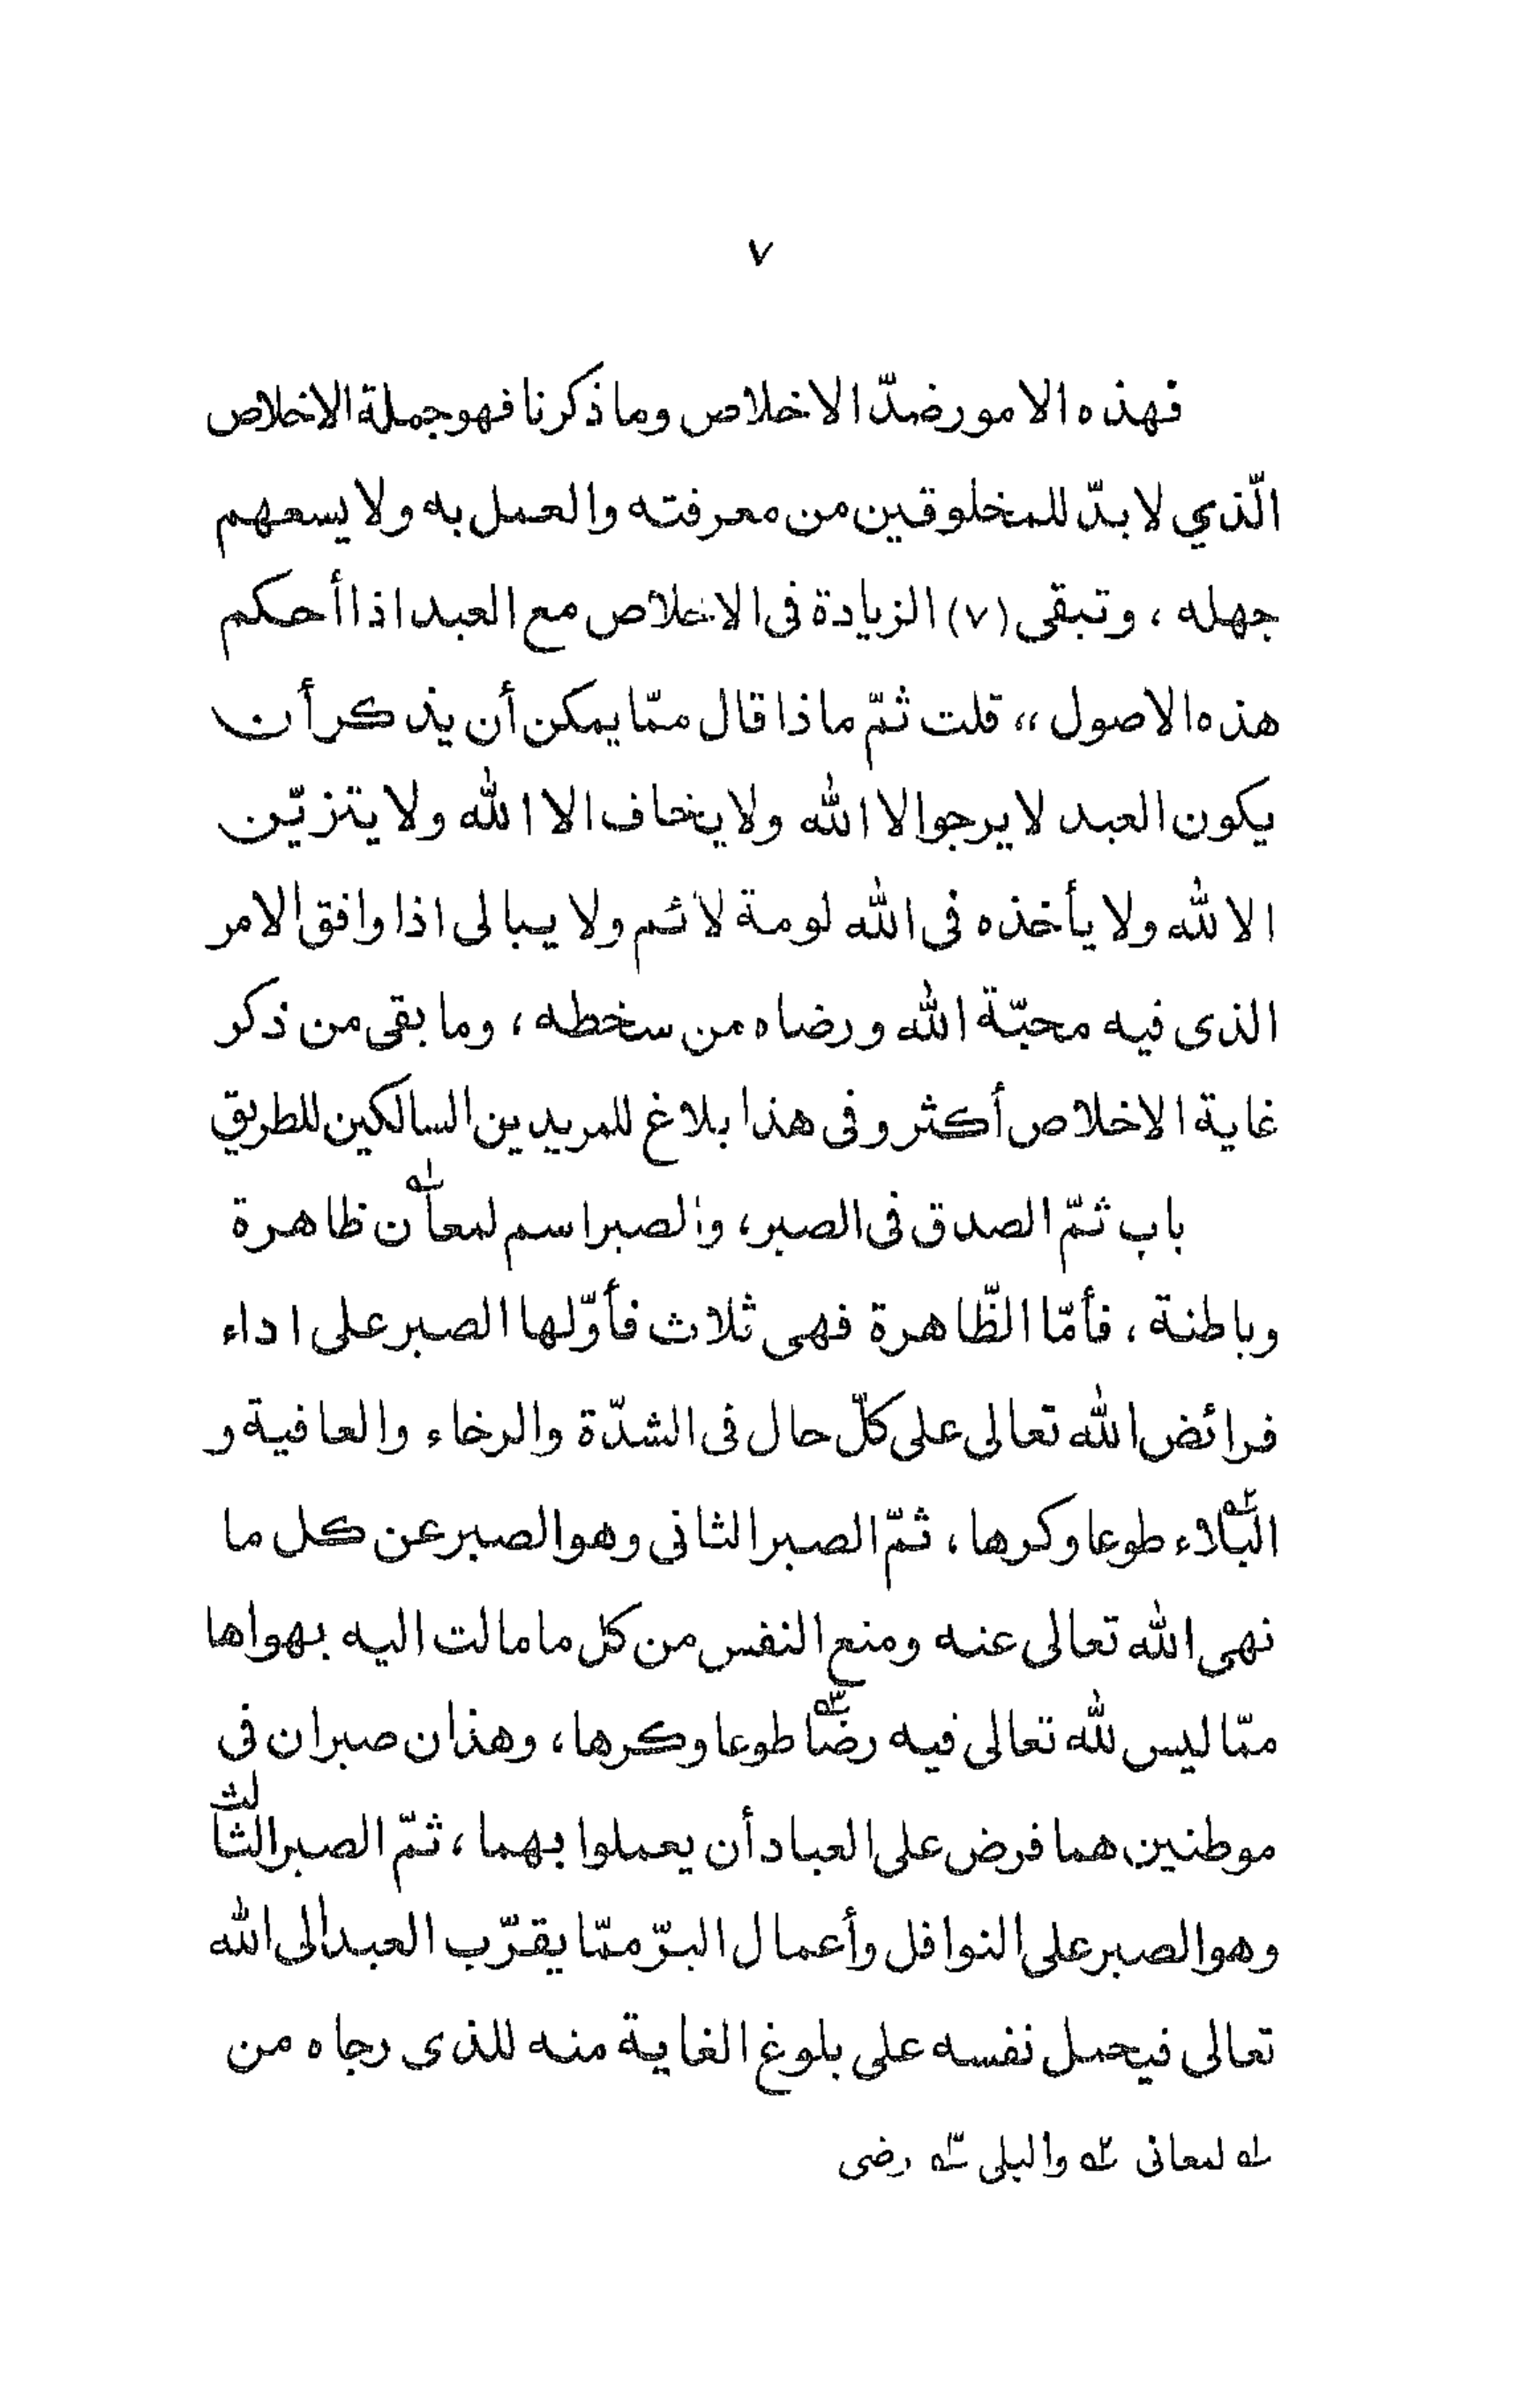 ٧
فهذه الامور ضدّ الاخلاص وما ذكرنا فهو جملة الاخلاص
الّذي لا بدّ للمخلوقين من معرفته والعمل به ولا يسعهم
جهله ، وتبقى (٧) الزيادة فى الاخلاص مع العبد اذا أحكم
هذه الاصول ،، قلت ثمّ ماذا قال ممّا يمكن أن يذكر أن
يكون العبد لا يرجو الا الله ولا يخاف الا الله ولا يتزيّن
الا لله ولا يأخذه فى الله لومة لائم ولا يبالى اذا وافق الامر
الذى فيه محبّة الله ورضاه من سخطه ، وما بقى من ذكر
غاية الاخلاص أكثر وفى هذا بلاغ للمريدين السالكين للطريق
باب ثمّ الصدق فى الصبر، والصبر اسم لمعان له ظاهرة
وباطنة ، فأمّا الظّاهرة فهى ثلاث فأوّلها الصبر على اداء
فرائض الله تعالى على كلّ حال فى الشدّة والرخاء والعافية و
البلاء ٢ه طوعا وكرها ، ثمّ الصبر الثانى وهو الصبر عن كل ما
نهى الله تعالى عنه ومنع النفس من كل ما مالت اليه بهواها
ممّا ليس لله تعالى فيه رضًا ٣ه طوعا وكرها ، وهذان صبران فى
موطنين هما فرض على العباد أن يعملوا بهما ، ثمّ الصبر الثالث
وهو الصبر على النوافل وأعمال البرّ ممّا يقرّب العبد الى الله
تعالى فيحمل نفسه على بلوغ الغاية منه للذى رجاه من
له لمعانى ٢ه والبلى ٣ه رضى